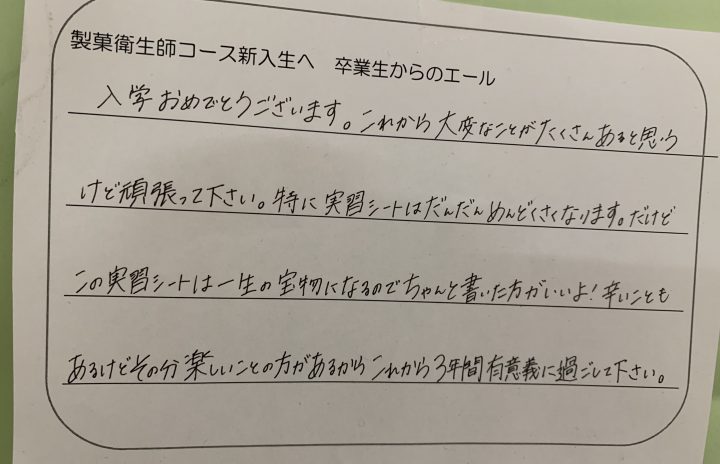 製菓衛生師コース新入生へ　卒業生からのエール
入学おめでとうございます。これから大変なことがたくさんあると思う
けど頑張って下さい。特に実習シートはだんだんめんどくさくなります。だけど
この実習シートは一生の宝物になるのでちゃんと書いた方がいいよ！辛いことも
あるけどその分楽しいことの方があるからこれから3年間有意義に過ごして下さい。